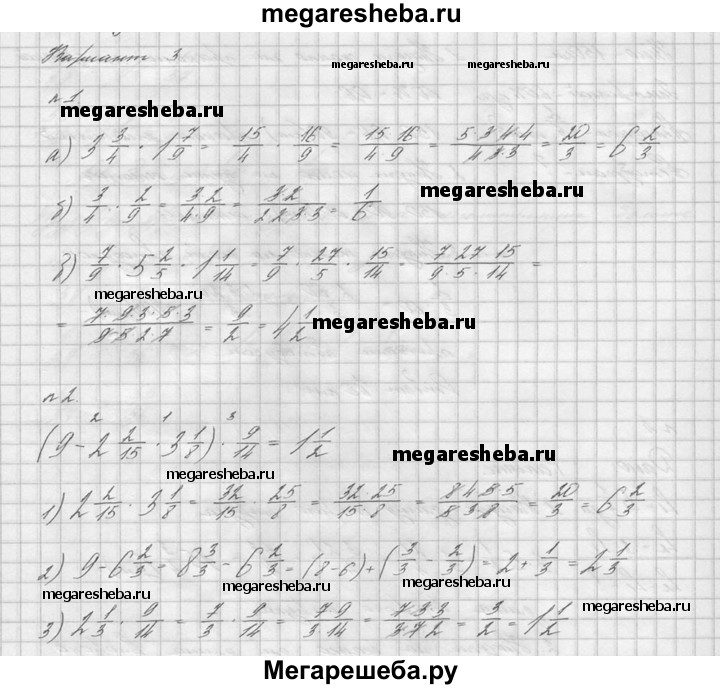 megaresheba.ru
Вариант 3
megaresheba.ru megaresheba.ru
№1
megaresheba.ru
а) 3 3/4 · 1 7/9 = 15/4 · 16/9 = 15·16/4·9 = 5·3·4·4/4·3·3 = 20/3 = 6 2/3
megaresheba.ru
б) 3/4 · 2/9 = 3·2/4·9 = 3·2/2·2·3·3 = 1/6
в) 7/9 · 5 2/5 · 1 1/14 = 7/9 · 27/5 · 15/14 = 7·27·15/9·5·14 =
megaresheba.ru
= 7·9·3·5·3/9·5·2·7 = 9/2 = 4 1/2
megaresheba.ru
№2.
2 1 3
(9 - 2 2/15 · 3 1/8) · 9/14 = 1 1/2
megaresheba.ru
megaresheba.ru
1) 2 2/15 · 3 1/8 = 32/15 · 25/8 = 32·25/15·8 = 8·4·5·5/5·3·8 = 20/3 = 6 2/3
2) 9 - 6 2/3 = 8 3/3 - 6 2/3 = (8-6) + (3/3 - 2/3) = 2 + 1/3 = 2 1/3
megaresheba.ru megaresheba.ru megaresheba.ru
megaresheba.ru
3) 2 1/3 · 9/14 = 7/3 · 9/14 = 7·9/3·14 = 7·3·3/3·7·2 = 3/2 = 1 1/2
Мегарешеба.ру